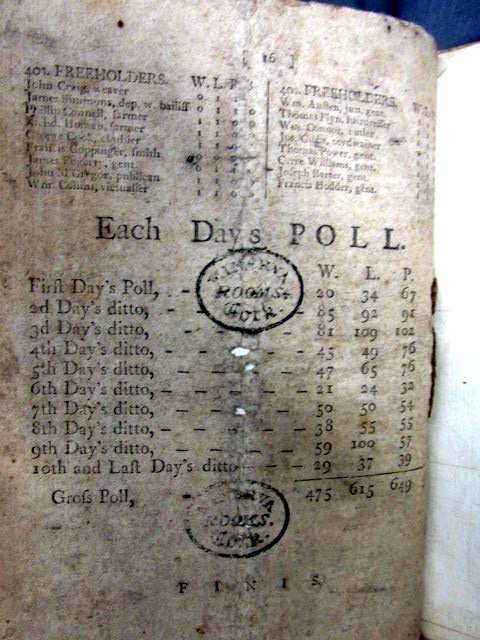 [ 16 ]
40s. FREEHOLDERS. W. L. P.
John Craig, weaver
James Simmons, dep. w. bailiff
Phillip Connell, farmer
Homan, farmer
George Cook, clothier
Francis Goppinger, smith
James Fogerty, gent.
John M'Gregor, publican
Wm. Collins, victualler
40s. FREEHOLDERS.
Wm. Austen, jun. gent.
Thomas Flyn, hairdresser
Wm. Connor, cutler
cordwainer
Thomas Power, gent.
Williams, gent.
Joseph Barter, gent.
Francis Hodder, gent.
Each Day's POLL.
W. L. P.
First Day's Poll, - 20 34 67
2d Day's ditto, - 85 92 91
3d Day's ditto, - 81 109 102
4th Day's ditto, - - - - - 45 49 76
5th Day's ditto, - - - - - 47 65 76
6th Day's ditto, - - - - - 21 24 32
7th Day's ditto, - - - - - 50 50 54
8th Day's ditto, - - - - - 38 55 55
9th Day's ditto, - - - - - 59 100 57
10th and Last Day's ditto - - - 29 37 39
Gross Poll, 475 615 649
MINERVA
ROOMS.
Cork.
MINERVA
ROOMS.
Cork.
F I N I S.